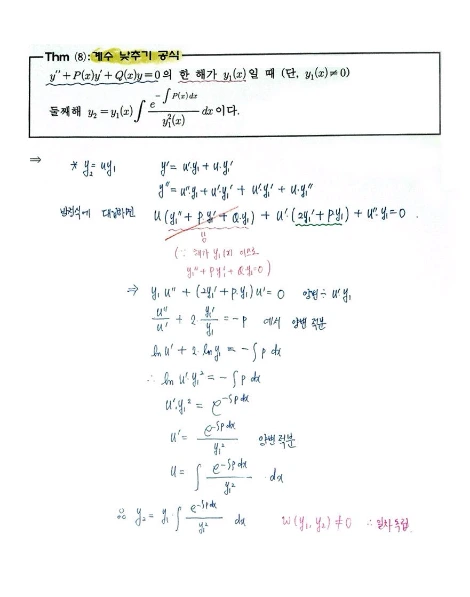 Thm (8): 계수 낮추기 공식
y″ + P(x)y′ + Q(x)y = 0 의 한 해가 y₁(x) 일 때 (단, y₁(x) ≠ 0)
둘째해 y₂ = y₁(x) ∫ e^(-∫P(x)dx) / y₁²(x) dx 이다.
⇒ * y₂ = uy₁ y′ = u′y₁ + u·y₁′
y″ = u″y₁ + u′y₁′ + u′y₁′ + u·y₁″
방정식에 대입하면 u(y₁″ + P·y₁′ + Q·y₁) + u′·(2y₁′ + Py₁) + u″·y₁ = 0.
0
(∵ 해가 y₁(x) 이므로
y₁″ + Py₁′ + Qy₁ = 0)
⇒ y₁u″ + (2y₁′ + P·y₁)u′ = 0 양변 ÷ u′y₁
u″/u′ + 2·y₁′/y₁ = -P 에서 양변 적분
ln u′ + 2·ln y₁ = -∫P dx
∴ ln u′·y₁² = -∫P dx
u′·y₁² = e^(-∫P dx)
u′ = e^(-∫P dx) / y₁² 양변 적분
u = ∫ e^(-∫P dx) / y₁² dx
∴ y₂ = y₁·∫ e^(-∫P dx) / y₁² dx W(y₁, y₂) ≠ 0 ∴ 일차독립.